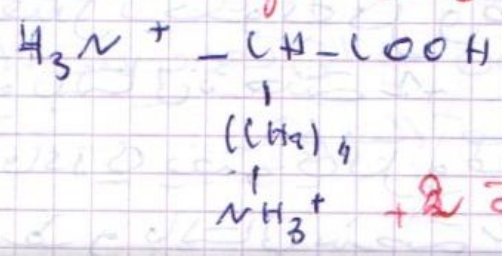 H₃N⁺ – CH – COOH
|
(CH₂)₄
|
NH₃⁺ +2